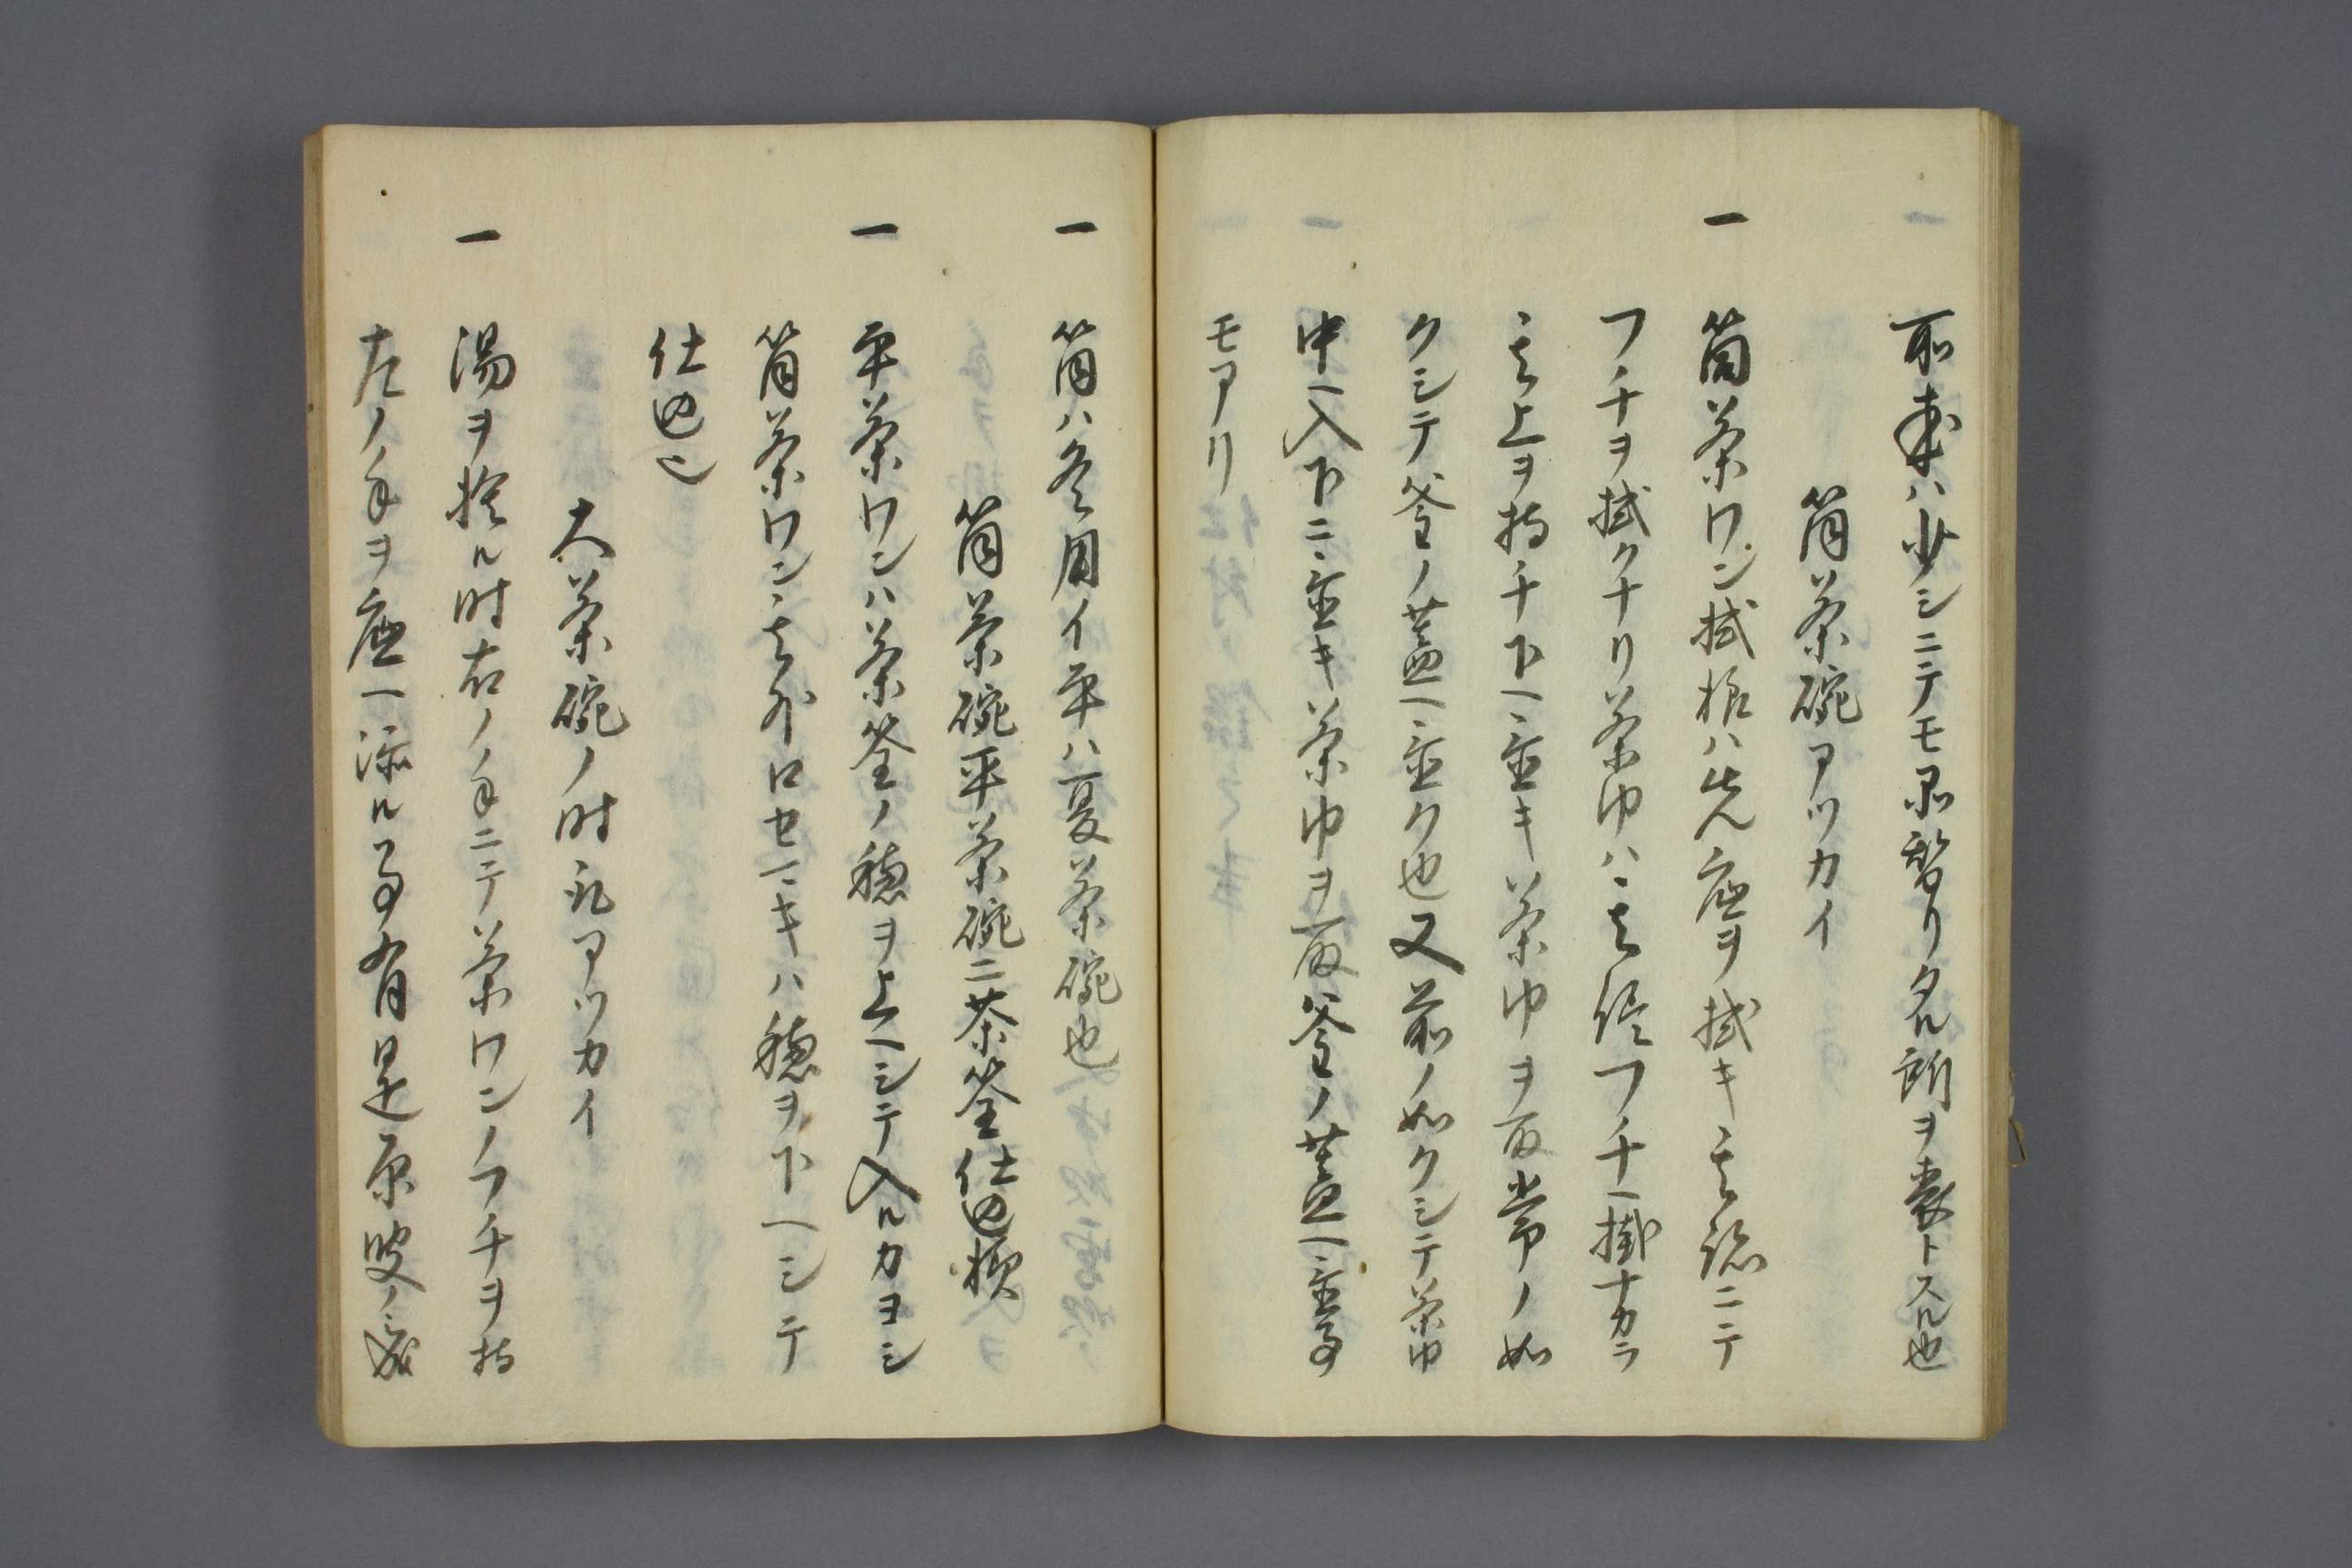 ハ少シニテモ替リタル所ヲ表トスル也
筒茶碗アツカイ
一 筒茶ワン拭様ハ先底ヲ拭キ其認ニテ
フチヲ拭クナリ茶巾ハ其侭フチヘ掛ナカラ
其上ヲ持チ下ヘ置キ茶巾ヲ取常ノ如
クシテ釜ノ蓋ヘ置ク也又前ノ如クシテ茶巾
中ヘ入下ニ置キ茶巾ヲ取釜ノ蓋ヘ置事
モアリ
一 筒ハ冬用イ平ハ夏茶碗也
筒茶碗平茶碗ニ茶筌仕込様
一 平茶ワンハ茶筌ノ穂ヲ上ヘシテ入ルカヨシ
筒茶ワン其外口セマキハ穂ヲ下ヘシテ
仕込ム
大茶碗ノ時アツカイ
一 湯ヲ捨ル時右ノ手ニテ茶ワンノフチヲ持
左ノ手ヲ底ヘ添ル事有是原叟ノ